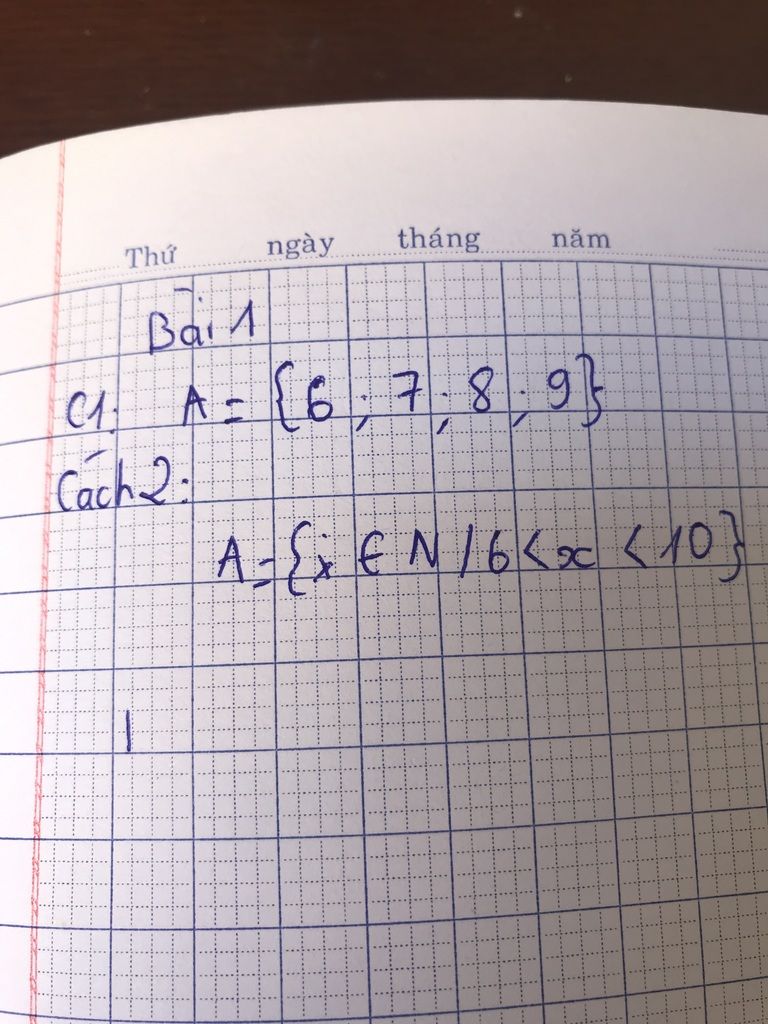 Thứ ngày tháng năm
Bài 1
C1: A = {6 ; 7 ; 8 ; 9}
Cách 2:
A = {x ∈ N / 6 < x < 10}